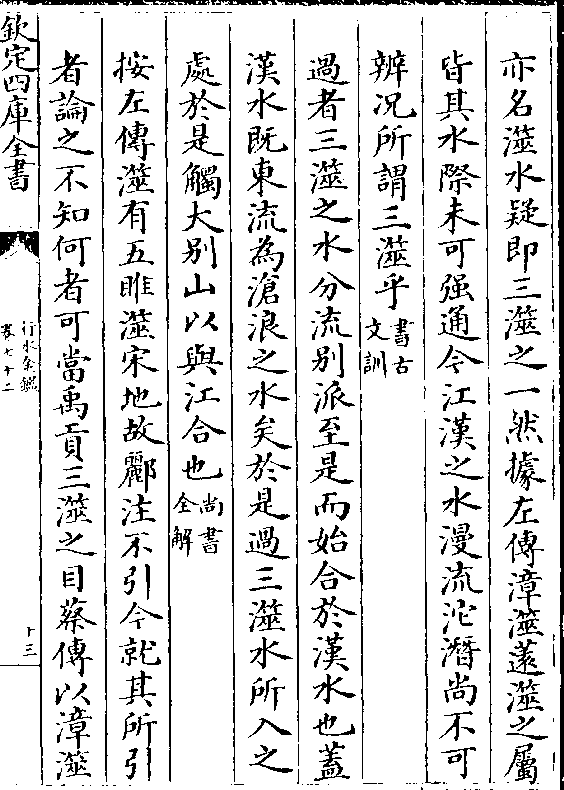 亦名澨水疑即三澨之一然據左傳漳澨薳澨之屬
皆其水際未可强通今江漢之水漫流沱潛尚不可
辨况所謂三澨乎書古文訓
過者三澨之水分流别派至是而始合於漢水也蓋
漢水既東流為滄浪之水矣於是過三澨水所入之
處於是觸大别山以與江合也尚書全解
按左傳澨有五睢澨宋地故酈注不引今就其所引
者論之不知何者可當禹貢三澨之目蔡傳以漳澨
欽定四庫全書
行水金鑑
卷七十二
十三